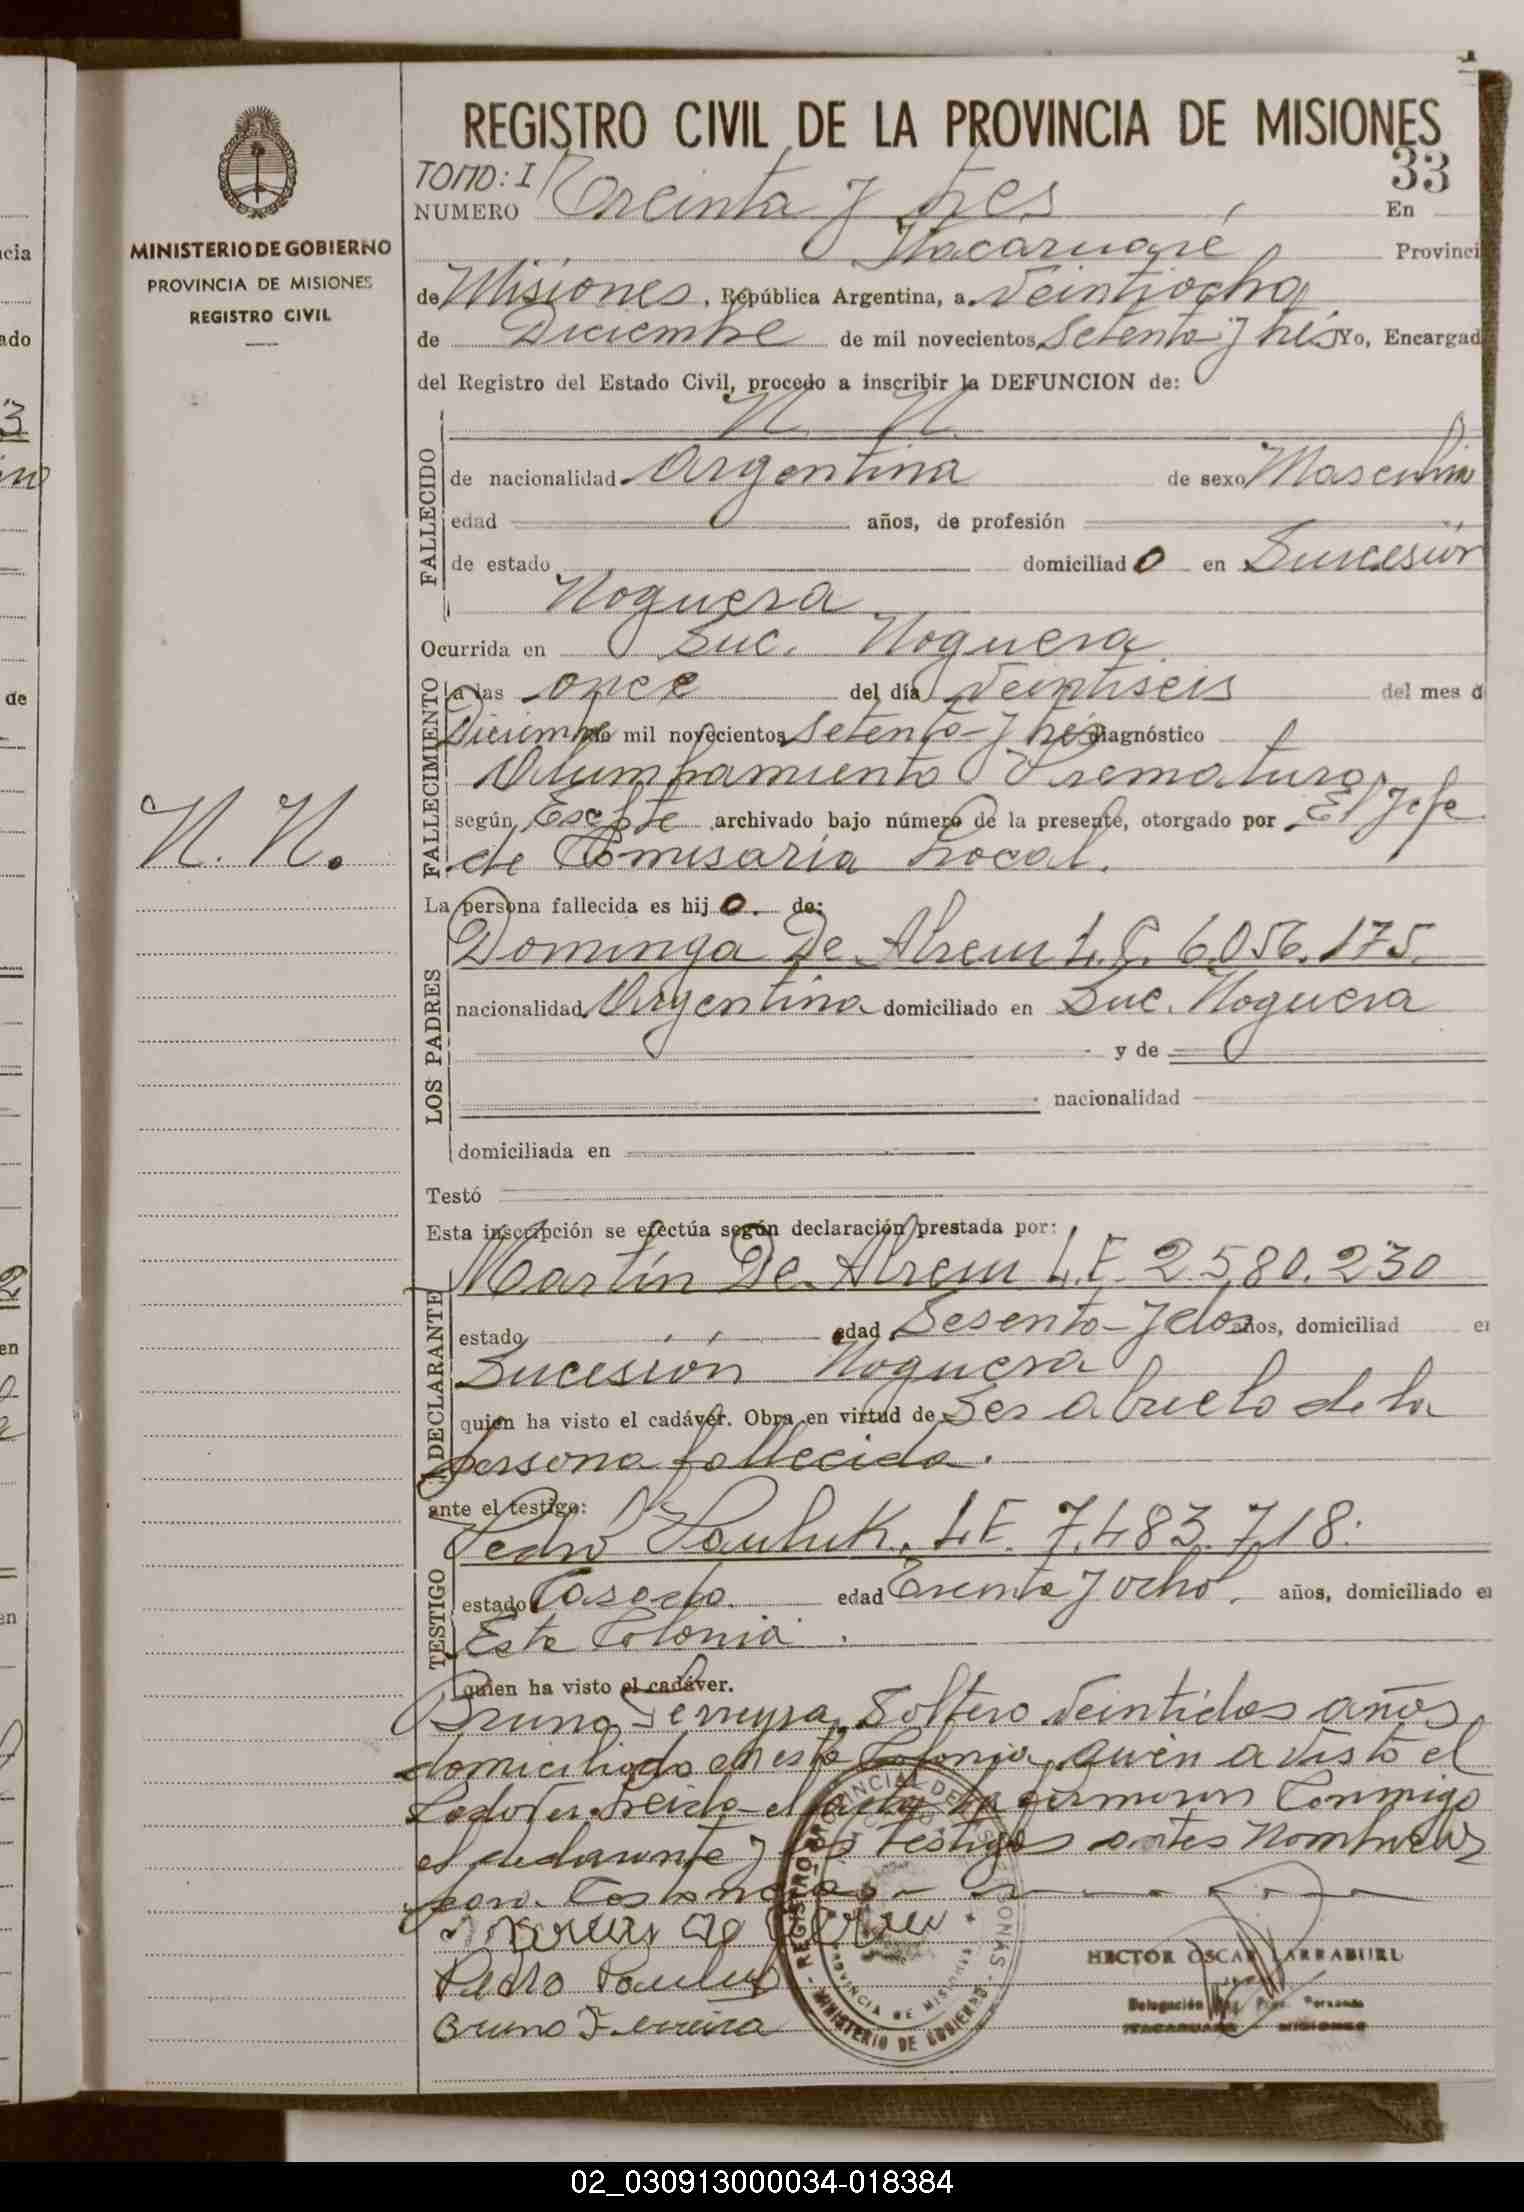 REGISTRO CIVIL DE LA PROVINCIA DE MISIONES
TOMO: I
33
NUMERO Treinta y tres En
Itacaruaré Provinci
de Misiones, República Argentina, a veintiocho
de Diciembre de mil novecientos Setenta y tres Yo, Encargad
del Registro del Estado Civil, procedo a inscribir la DEFUNCION de:
N. N.
FALLECIDO
de nacionalidad Argentina de sexo Masculin
edad años, de profesión
de estado domiciliado en Sucesión
Noguera
Ocurrida en Suc. Noguera
FALLECIMIENTO
a las once del día veintiseis del mes d
Diciembre mil novecientos setenta y tres diagnóstico
Alumbramiento Prematuro
según archivado bajo número de la presente, otorgado por El Jefe
de Comisaria Local.
La persona fallecida es hijo. de:
LOS PADRES
Dominga De Abreu L.C. 6.056.175.
nacionalidad Argentina domiciliado en Suc. Noguera
y de
nacionalidad
domiciliada en
Testó
Esta inscripción se efectúa según declaración prestada por:
DECLARANTE
Martín De Abreu L.E. 2.580.230
estado edad Sesenta y dos años, domiciliad e
Sucesión Noguera
quien ha visto el cadáver. Obra en virtud de Ser abuelo de la
persona fallecida.
ante el testigo:
TESTIGO
Pedro Pauluk. L.E. 7.483.718.
estado Casado. edad Treinta y ocho años, domiciliado e
Esta Colonia.
quien ha visto el cadáver.
Bruno Ferreyra, Soltero veintidos años
domiciliado en esta Colonia, quien a visto el
Cadaver. Leida el acta la firmaron Conmigo
el declarante y los testigos antes Nombrados
para Constancia
Pedro Pauluk
Bruno Ferreira
REGISTRO PROVINCIAL DE LAS PERSONAS
PROVINCIA DE MISIONES
MINISTERIO DE GOBIERNO
HECTOR OSCAR LARRABURU
Delegación Reg. Prov. Personas
ITACARUARE MISIONES
MINISTERIO DE GOBIERNO
PROVINCIA DE MISIONES
REGISTRO CIVIL
N. N.
02_030913000034-018384